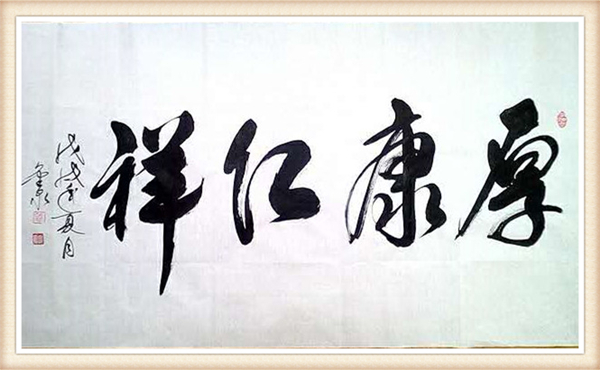 厚康仁祥
戊戌年夏月